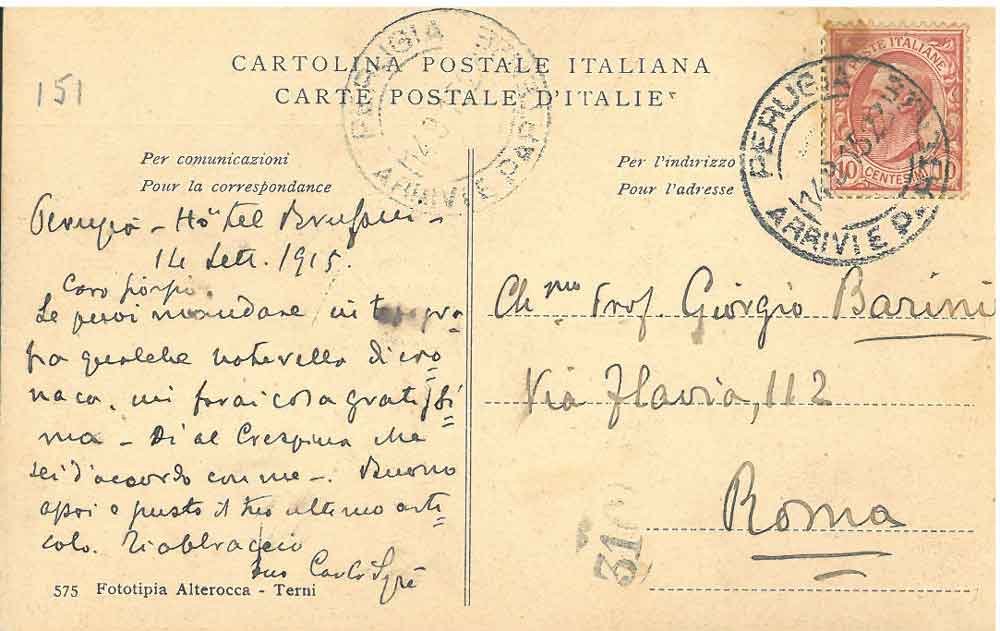 151
CARTOLINA POSTALE ITALIANA
CARTE POSTALE D'ITALIE
PERUGIA
ARRIVI E PAR
POSTE ITALIANE
10 CENTESIMI 10
PERUGIA
ARRIVI E PAR
14.9.15.22
Per comunicazioni
Pour la correspondance
Per l'indirizzo
Pour l'adresse
Perugia - Hôtel Brufani -
14 Sett. 1915.
Caro Giorgio,
Se puoi mandare in
fia qualche noterella di cro
naca, mi farai cosa gratissi
ma - Di al Crespina che
sei d'accordo con me -. Buono
e giusto il tuo ultimo arti
colo. Ti abbraccio
tuo Carlo
Ch.mo Prof. Giorgio Barini
Via Flavia, 112
Roma
310
575 Fototipia Alterocca - Terni